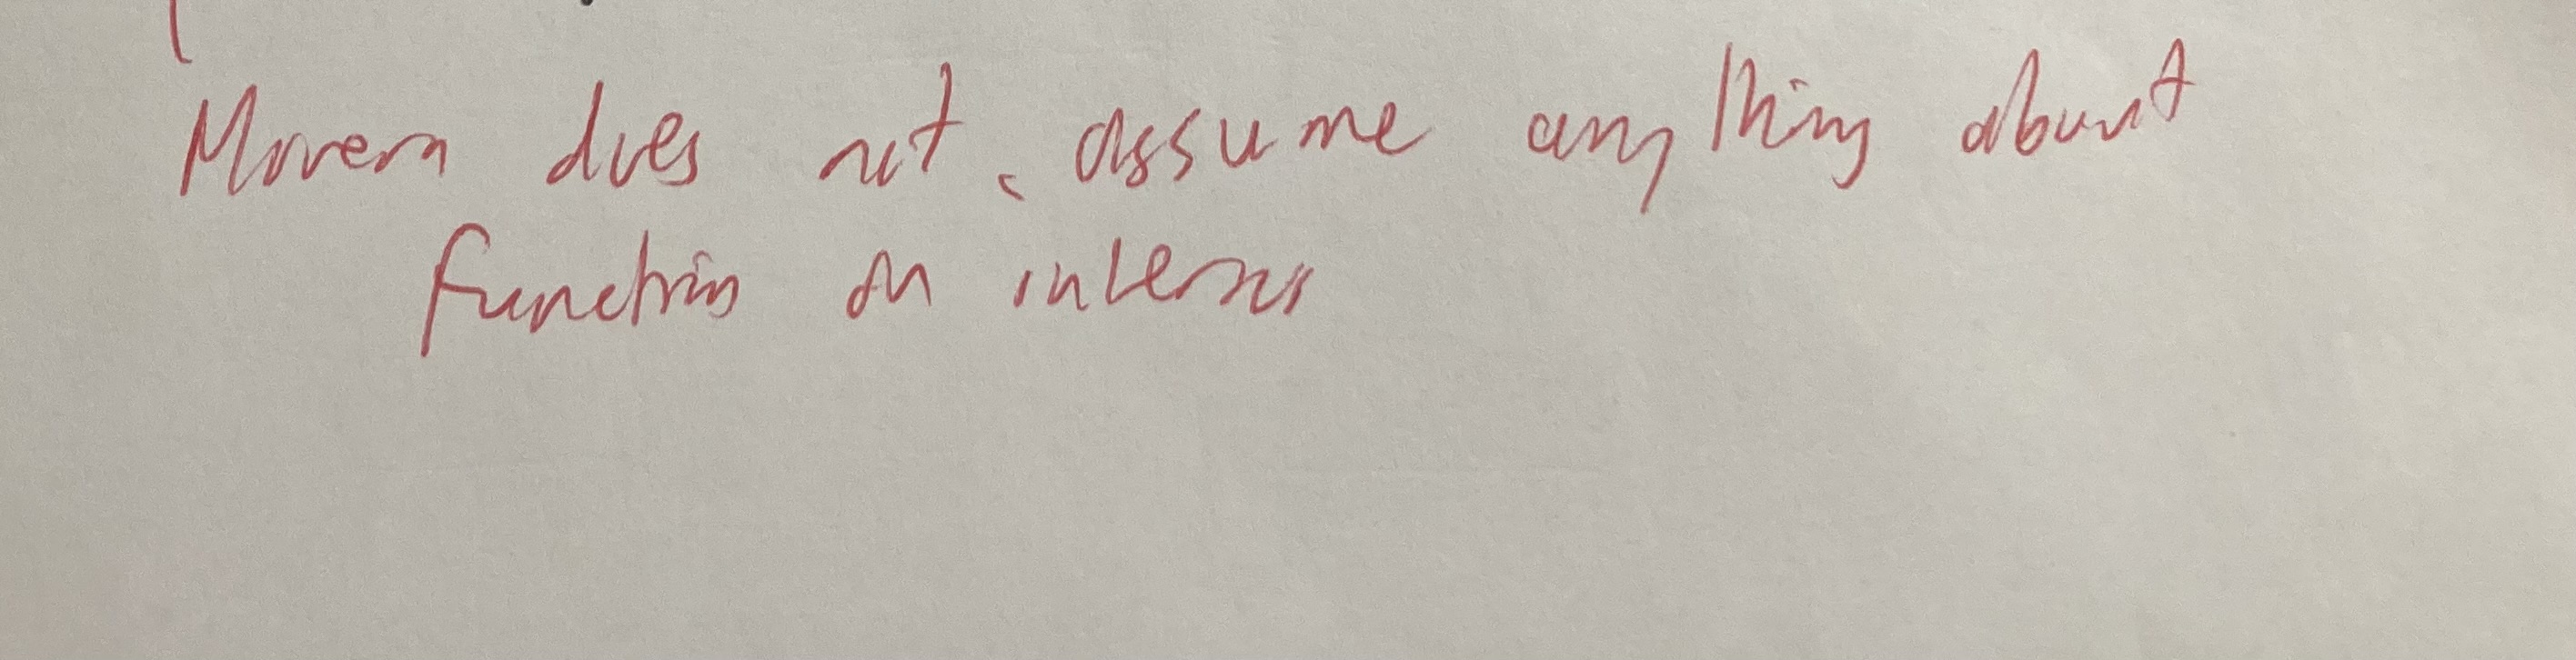 Morera does not assume anything about
function on interior